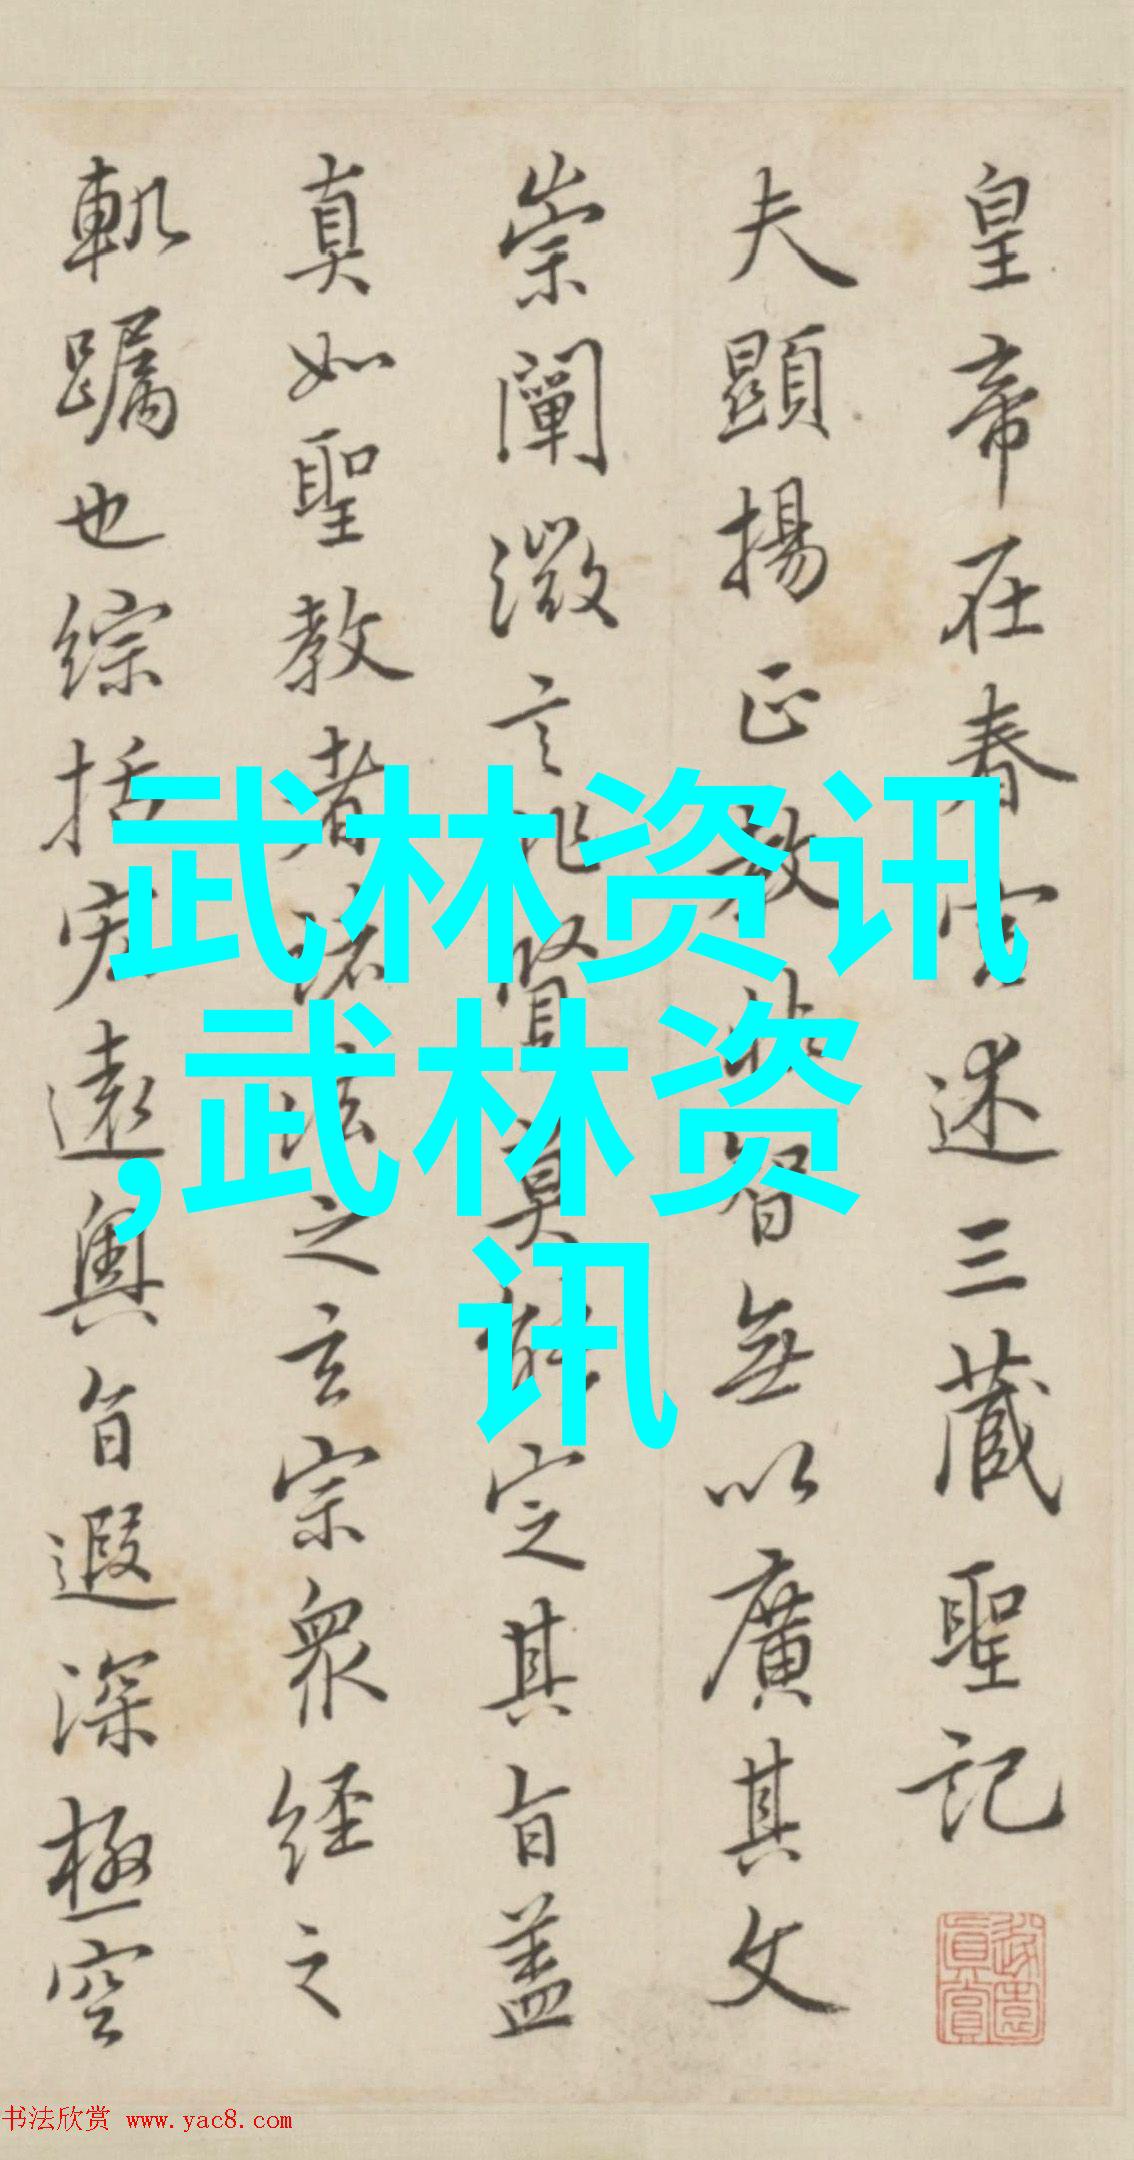 皇帝在春宮述三藏聖記
夫顯揚正教非智無以廣其文
崇闡微言非賢莫能定其旨蓋
真如聖教者諸法之玄宗眾經之
軌躅也綜括宏遠奧旨遐深極空
武林资讯
,武林资
讯
书法欣赏 www.yac8.com